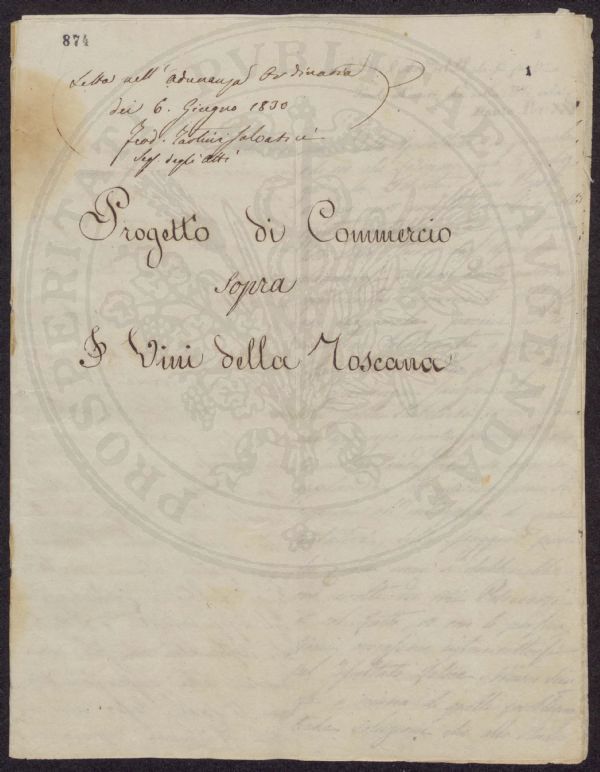 874
1
Letto nell' adunanza Ordinaria
dei 6. Giugno 1830
Seg. degli Atti
Progetto di Commercio
Sopra
I Vini della Toscana
PROSPERITATI PUBLICAE AUGENDAE